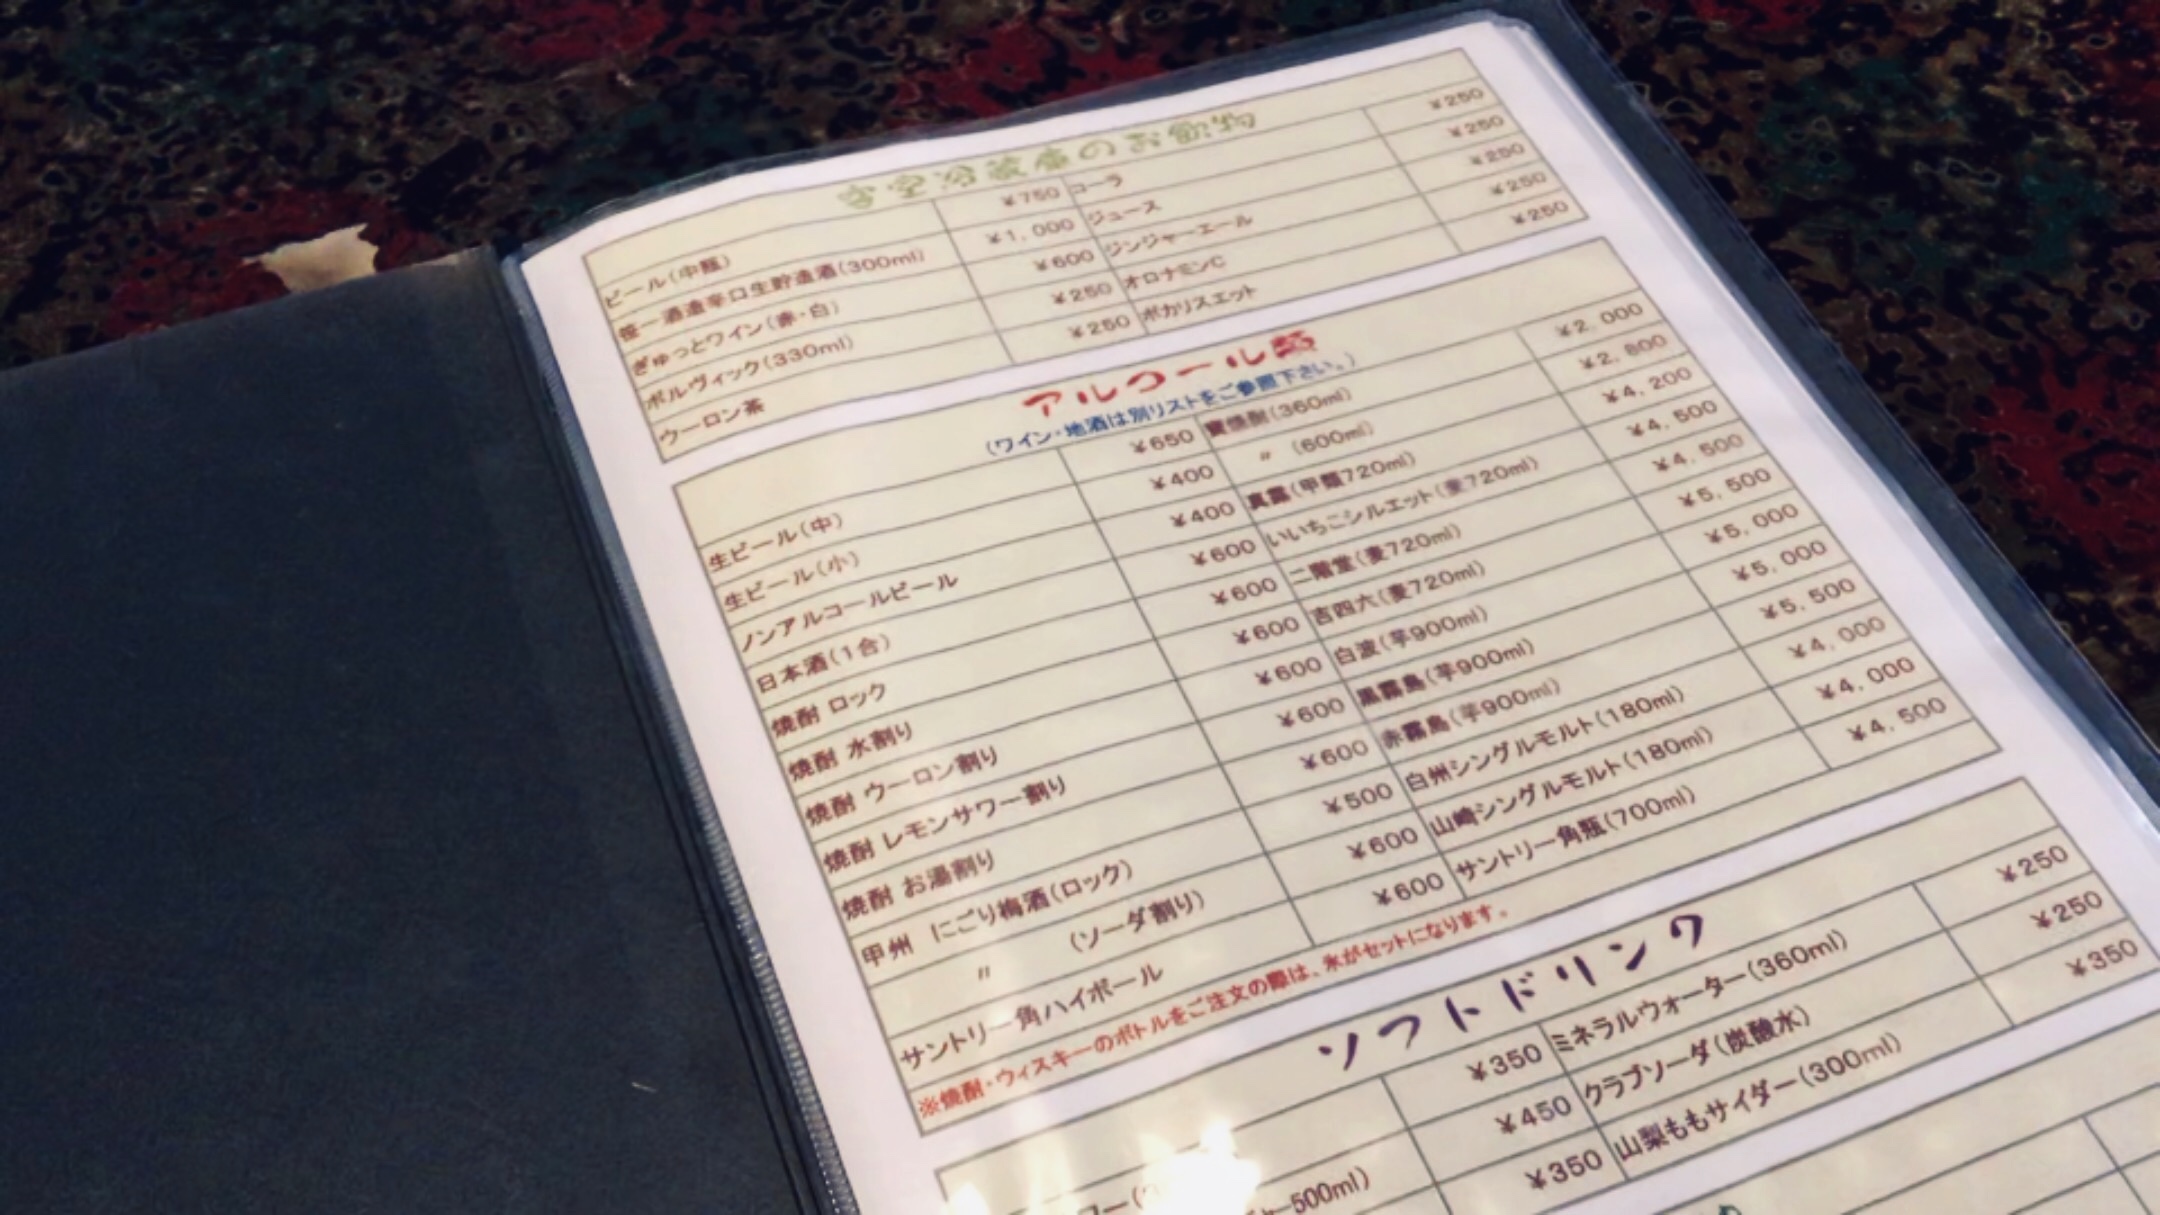 客室冷蔵庫のお飲物
ビール(中瓶) ¥750 コーラ ¥250
笹一酒造辛口生貯造酒(300ml) ¥1,000 ジュース ¥250
ぎゅっとワイン(赤・白) ¥600 ジンジャーエール ¥250
ボルヴィック(330ml) ¥250 オロナミンC ¥250
ウーロン茶 ¥250 ポカリスエット ¥250
アルコール類
(ワイン・地酒は別リストをご参照下さい。)
生ビール(中) ¥650 寶焼酎(360ml) ¥2,000
生ビール(小) ¥400 〃 (600ml) ¥2,800
ノンアルコールビール ¥400 真露(甲類720ml) ¥4,200
日本酒(1合) ¥600 いいちこシルエット(麦720ml) ¥4,500
焼酎 ロック ¥600 二階堂(麦720ml) ¥4,500
焼酎 水割り ¥600 吉四六(麦720ml) ¥5,500
焼酎 ウーロン割り ¥600 白波(芋900ml) ¥5,000
焼酎 レモンサワー割り ¥600 黒霧島(芋900ml) ¥5,000
焼酎 お湯割り ¥600 赤霧島(芋900ml) ¥5,500
甲州 にごり梅酒(ロック) ¥500 白州シングルモルト(180ml) ¥4,000
〃 (ソーダ割り) ¥600 山崎シングルモルト(180ml) ¥4,000
サントリー角ハイボール ¥600 サントリー角瓶(700ml) ¥4,500
※焼酎・ウィスキーのボトルをご注文の際は、氷がセットになります。
ソフトドリンク
¥350 ミネラルウォーター(360ml) ¥250
¥450 クラブソーダ(炭酸水) ¥250
500ml) ¥350 山梨ももサイダー(300ml) ¥350